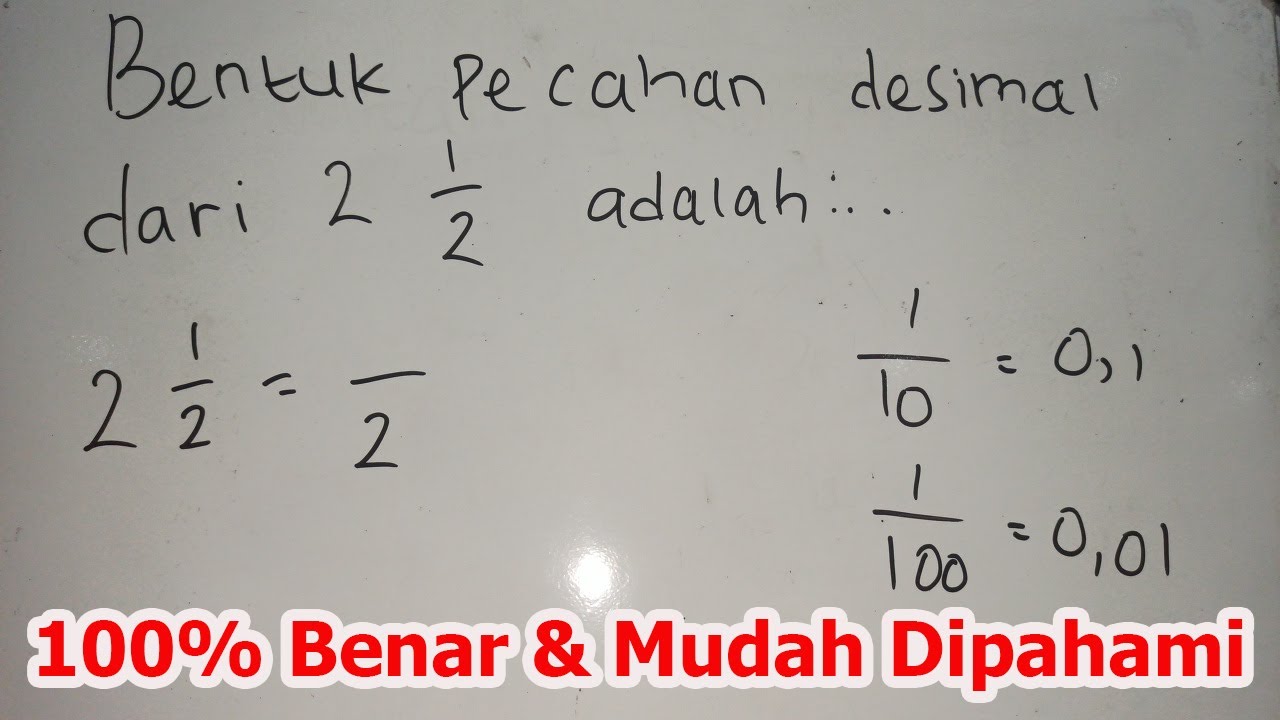 Bentuk pecahan desimal
dari 2 1/2 adalah:...
2 1/2 = /2
1/10 = 0,1
1/100 = 0,01
100% Benar & Mudah Dipahami